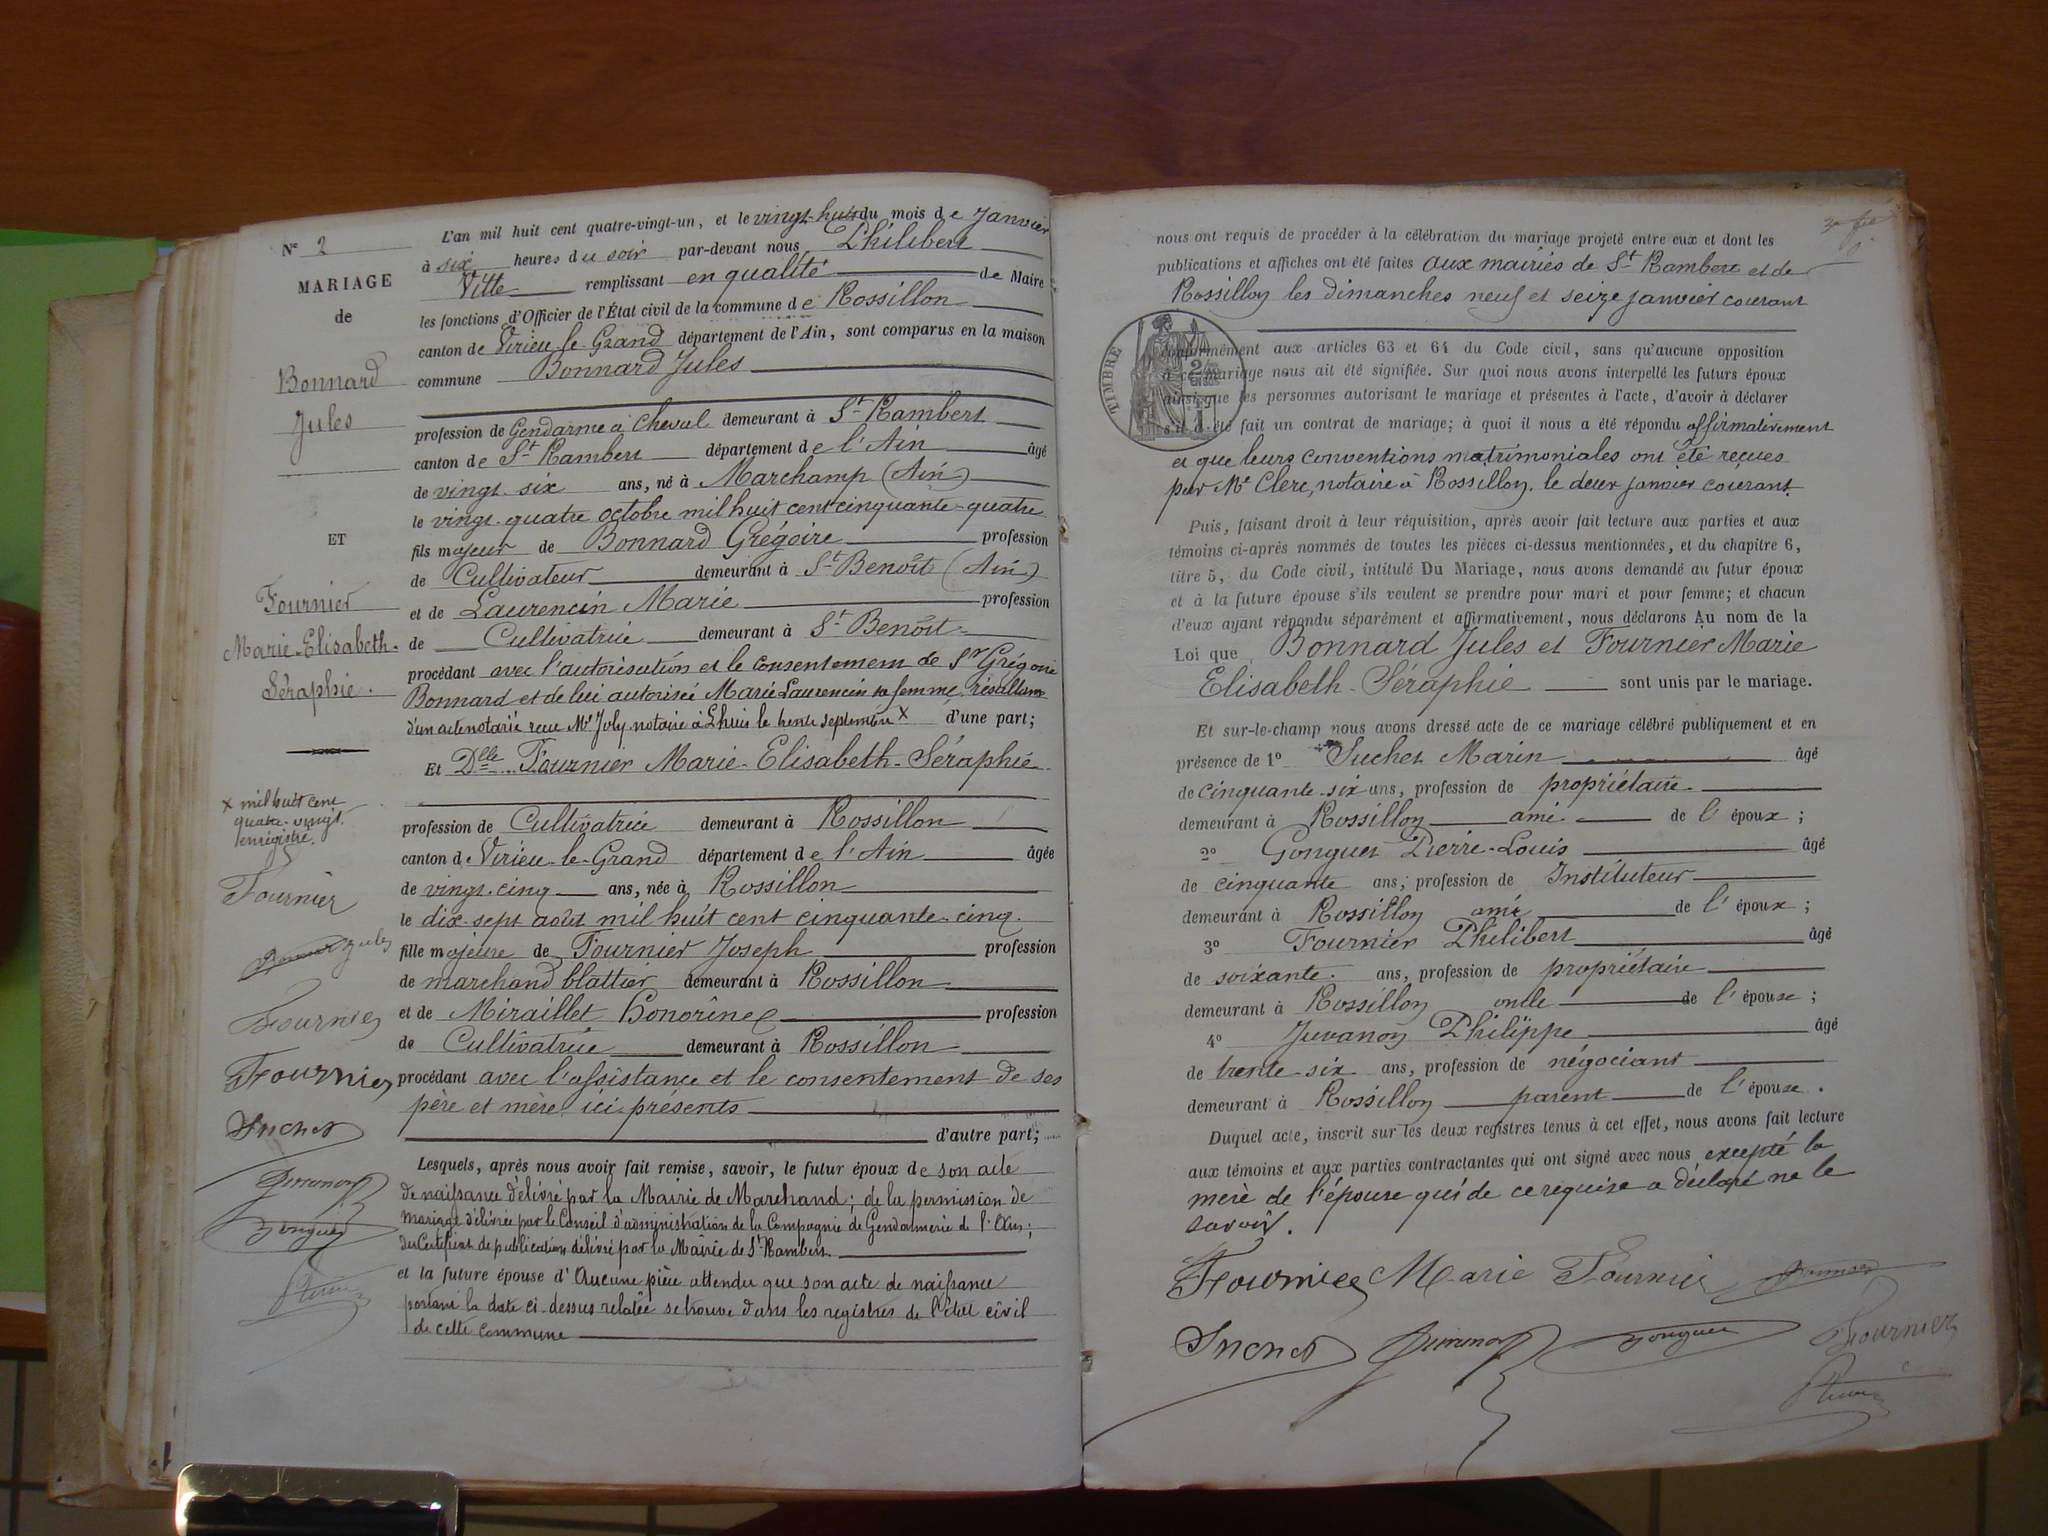 Nº 2
MARIAGE
de
Bonnard
Jules
ET
Fournier
Marie-Elisabeth-
Séraphie.
x mil huit cent
quatre-vingt.
enregistré.
Fournier
Bonnard Jules
Fournier
Fournier
Suchet
Juvanon
Gonguet
L'an mil huit cent quatre-vingt-un, et le vingt-huit du mois de Janvier
à six heures du soir par-devant nous Philibert
Vitte remplissant en qualité de Maire
les fonctions d'Officier de l'État civil de la commune de Rossillon
canton de Virieu-le-Grand département de l'Ain, sont comparus en la maison
commune Bonnard Jules
profession de Gendarme à cheval demeurant à St Rambert
canton de St Rambert département de l'Ain âgé
de vingt-six ans, né à Marchamp (Ain)
le vingt-quatre octobre mil huit cent cinquante-quatre
fils majeur de Bonnard Grégoire profession
de Cultivateur demeurant à St Benoît (Ain)
et de Laurencin Marie profession
de Cultivatrice demeurant à St Benoît
procédant avec l'autorisation et le consentement de Sr Grégoire
Bonnard et de lui autorisée Marie Laurencin sa femme résultant
d'un acte notarié reçu Me Joly notaire à Lhuis le trente septembre x d'une part;
Et Dlle Fournier Marie-Elisabeth-Séraphie
profession de Cultivatrice demeurant à Rossillon
canton de Virieu-le-Grand département de l'Ain âgée
de vingt-cinq ans, née à Rossillon
le dix-sept août mil huit cent cinquante-cinq.
fille majeure de Fournier Joseph profession
de marchand blattier demeurant à Rossillon
et de Miraillet Honorine profession
de Cultivatrice demeurant à Rossillon
procédant avec l'assistance et le consentement de ses
père et mère ici présents
d'autre part;
Lesquels, après nous avoir fait remise, savoir, le futur époux de son acte
de naissance délivré par la Mairie de Marchand; de la permission de
mariage délivrée par le Conseil d'administration de la Compagnie de Gendarmerie de l'Ain;
du Certificat de publication délivré par la Mairie de St Rambert.
et la future épouse d'Aucune pièce attendu que son acte de naissance
portant la date ci-dessus relatée se trouve dans les registres de l'état civil
de cette commune
nous ont requis de procéder à la célébration du mariage projeté entre eux et dont les
publications et affiches ont été faites aux mairies de St Rambert et de
Rossillon les dimanches neuf et seize janvier courant
TIMBRE
conformément aux articles 63 et 64 du Code civil, sans qu'aucune opposition
à ce mariage nous ait été signifiée. Sur quoi nous avons interpellé les futurs époux
ainsi que les personnes autorisant le mariage et présentes à l'acte, d'avoir à déclarer
s'il a été fait un contrat de mariage; à quoi il nous a été répondu affirmativement
et que leurs conventions matrimoniales ont été reçues
par Me Clerc, notaire à Rossillon, le deux janvier courant.
Puis, faisant droit à leur réquisition, après avoir fait lecture aux parties et aux
témoins ci-après nommés de toutes les pièces ci-dessus mentionnées, et du chapitre 6,
titre 5, du Code civil, intitulé Du Mariage, nous avons demandé au futur époux
et à la future épouse s'ils veulent se prendre pour mari et pour femme; et chacun
d'eux ayant répondu séparément et affirmativement, nous déclarons Au nom de la
Loi que Bonnard Jules et Fournier Marie
Elisabeth-Séraphie sont unis par le mariage.
Et sur-le-champ nous avons dressé acte de ce mariage célébré publiquement et en
présence de 1º Suchet Marin âgé
de cinquante-six ans, profession de propriétaire
demeurant à Rossillon ami de l'époux;
2º Gonguet Pierre-Louis âgé
de cinquante ans, profession de Instituteur
demeurant à Rossillon ami de l'époux;
3º Fournier Philibert âgé
de soixante ans, profession de propriétaire
demeurant à Rossillon oncle de l'épouse;
4º Juvanon Philippe âgé
de trente-six ans, profession de négociant
demeurant à Rossillon parent de l'épouse.
Duquel acte, inscrit sur les deux registres tenus à cet effet, nous avons fait lecture
aux témoins et aux parties contractantes qui ont signé avec nous excepté la
mère de l'épouse qui de ce requise a déclaré ne le
savoir.
Fournier Marie Fournier Bonnard
Suchet Juvanon Gonguet Fournier